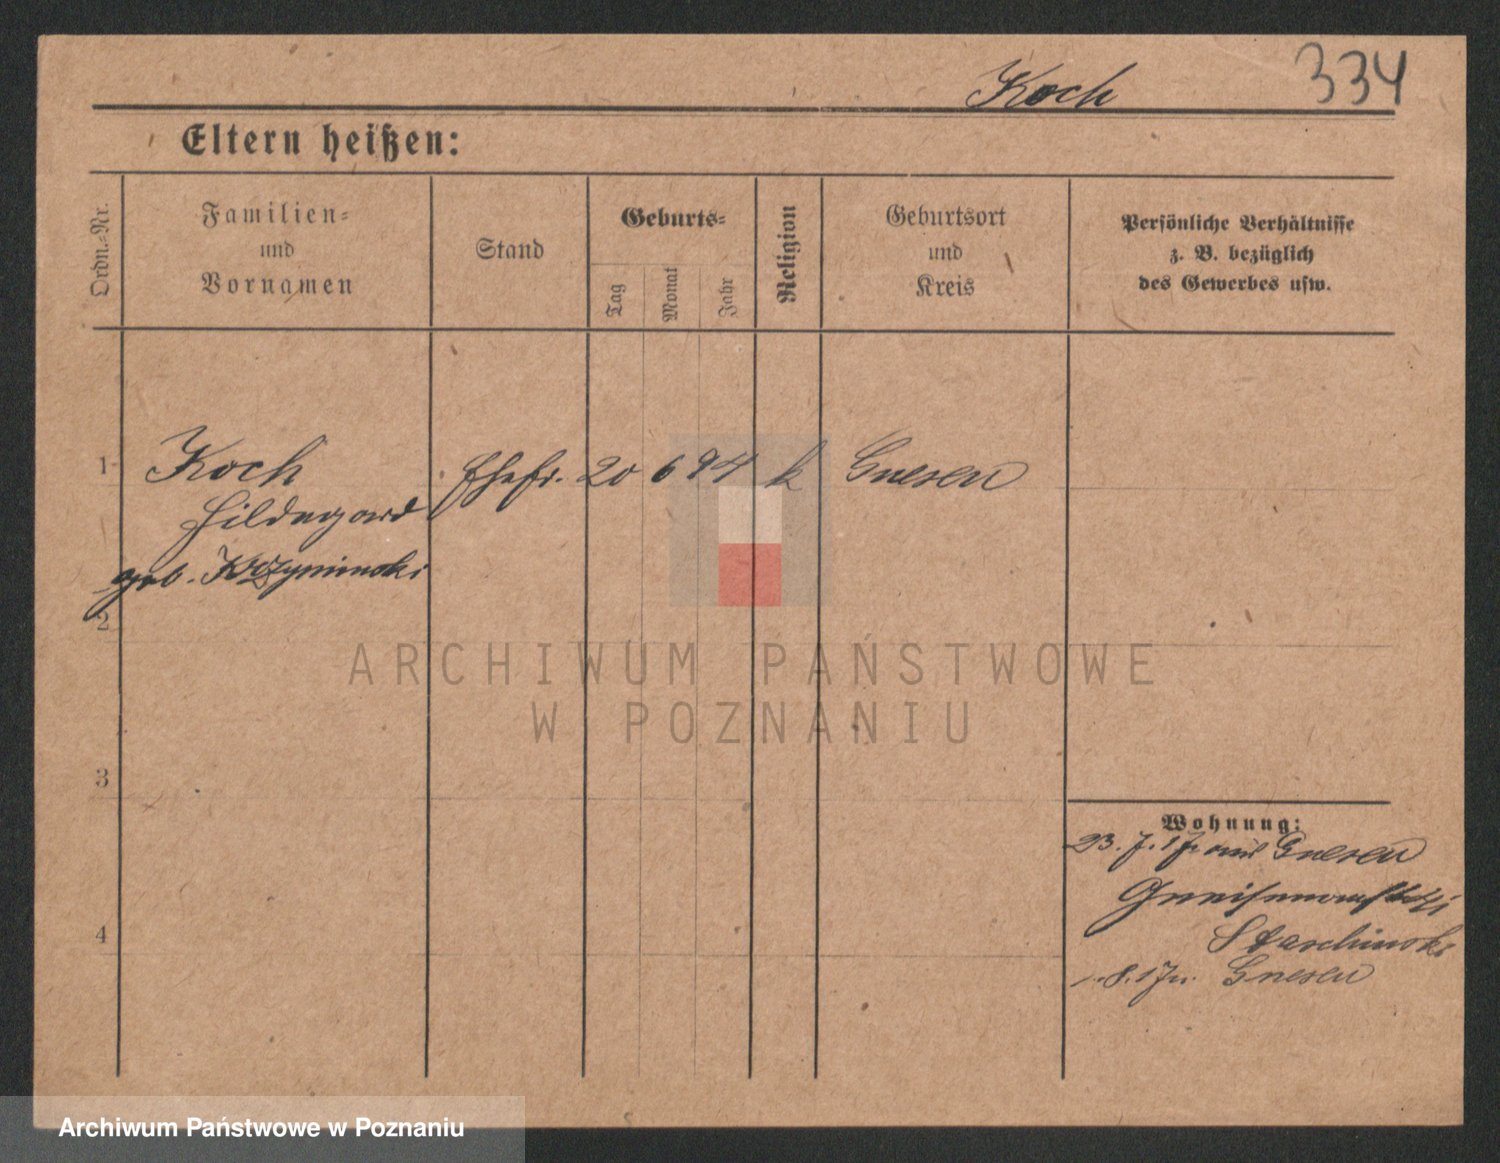 Koch 334
Eltern heißen:
Ordn.-Nr.
Familien-
und
Vornamen
Stand
Geburts-
Tag
Monat
Jahr
Religion
Geburtsort
und
Kreis
Persönliche Verhältnisse
z. B. bezüglich
des Gewerbes usw.
1 Koch Ehefr. 20 6 94 k Gnesen
Hildegard
geb. Krzyminski
2
3
4
Wohnung:
23. 7. 17 aus Gnesen
Starchinski
1. 8. 17 Gnesen
ARCHIWUM PAŃSTWOWE
W POZNANIU
Archiwum Państwowe w Poznaniu